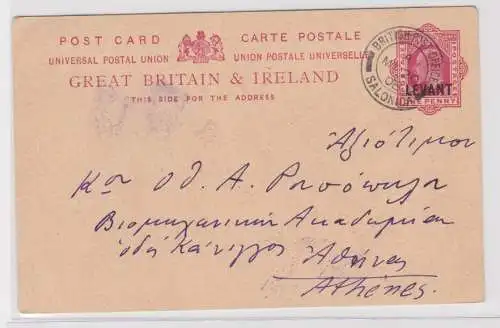 POST CARD CARTE POSTALE
UNIVERSAL POSTAL UNION UNION POSTALE UNIVERSELLE
GREAT BRITAIN & IRELAND
THIS SIDE FOR THE ADDRESS
BRITISH POST OFFICE
SALONICA
LEVANT
ONE PENNY
Ἀξιότιμον
Κον Ὀθ. Α. Ρουσόπουλον
Βιομηχανικὴν Ἀκαδημίαν
ὁδὸς Κάνιγγος Ἀθήνας
Athènes.